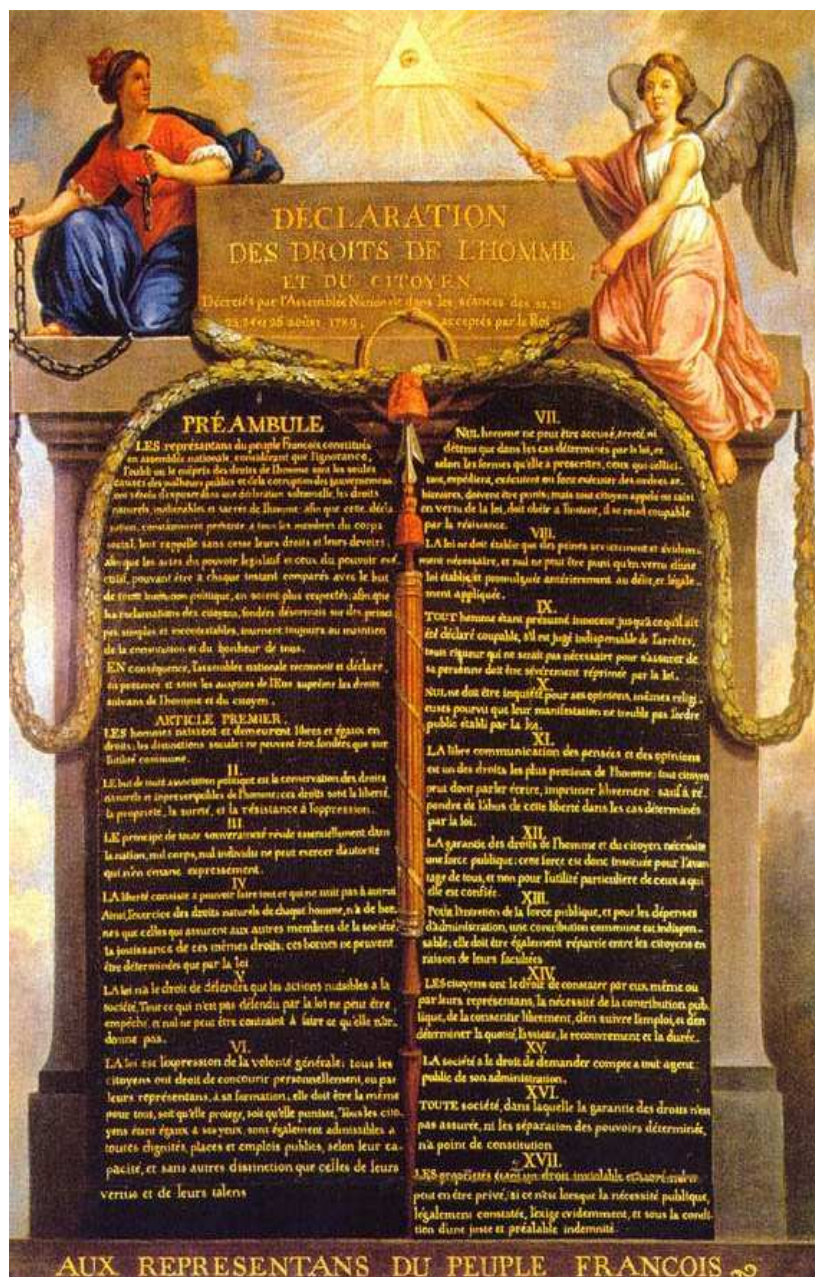 DÉCLARATION
DES DROITS DE L'HOMME
ET DU CITOYEN
Décretés par l'Assemblée Nationale dans les séances des 20, 21
23, 24 et 26 aoûst 1789, acceptés par le Roi
PRÉAMBULE
LES représentans du peuple François constitués
en assemblée nationale, considérant que l'ignorance,
l'oubli ou le mépris des droits de l'homme sont les seules
causes des malheurs publics et de la corruption des gouvernemens
ont résolu d'exposer dans une déclaration solemnelle, les droits
naturels, inaliénables et sacrés de l'homme: afin que cette décla
ration, constamment présente a tous les membres du corps
social, leur rappelle sans cesse leurs droits et leurs devoirs:
afin que les actes du pouvoir legislatif et ceux du pouvoir exé
cutif, pouvant être à chaque instant comparés avec le but
de toute institution politique, en soient plus respectés; afin que
les reclamations des citoyens, fondées désormais sur des princi
pes simples et incontestables, tournent toujours au maintien
de la constitution et du bonheur de tous.
EN conséquence, l'assemblée nationale reconnoit et déclare,
en présence et sous les auspices de l'Etre suprême les droits
suivans de l'homme et du citoyen.
ARTICLE PREMIER.
LES hommes naissent et demeurent libres et égaux en
droits; les distinctions sociales ne peuvent être fondées que sur
l'utilité commune.
II.
LE but de toute association politique est la conservation des droits
naturels et imprescriptibles de l'homme; ces droits sont la liberté,
la propriété, la sureté, et la résistance à l'oppression.
III.
LE principe de toute souveraineté réside essentiellement dans
la nation, nul corps, nul individu ne peut exercer d'autorité
qui n'en émane expressement.
IV.
LA liberté consiste a pouvoir faire tout ce qui ne nuit pas à autrui
Ainsi, l'exercice des droits naturels de chaque homme, n'a de bor
nes que celles qui assurent aux autres membres de la société
la jouissance de ces mêmes droits; ces bornes ne peuvent
être déterminées que par la loi
V.
LA loi n'a le droit de défendre que les actions nuisibles a la
société. Tout ce qui n'est pas défendu par la loi ne peut être
empêché, et nul ne peut être contraint à faire ce qu'elle n'or
donne pas.
VI.
LA loi est l'expression de la volonté générale; tous les
citoyens ont droit de concourir personnellement, ou par
leurs représentans, à sa formation; elle doit être la même
pour tous, soit qu'elle protege, soit qu'elle punisse, Tous les cito
yens étant égaux à ses yeux, sont également admissibles à
toutes dignités, places et emplois publics, selon leur ca
pacité, et sans autres distinction que celles de leurs
vertus et de leurs talens
VII.
NUL homme ne peut être accusé, arreté, ni
détenu que dans les cas déterminés par la loi, et
selon les formes qu'elle a prescrites, ceux qui sollici
tent, expédient, exécutent ou font exécuter des ordres ar
bitraires, doivent être punis; mais tout citoyen appelé ou saisi
en vertu de la loi, doit obéir a l'instant, il se rend coupable
par la résistance.
VIII.
LA loi ne doit établir que des peines strictement et évidem
ment nécessaire, et nul ne peut être puni qu'en vertu d'une
loi établie et promulguée antérierement au délit, et légale
ment appliquée.
IX.
TOUT homme étant présumé innocent jusqu'à ce qu'il ait
été déclaré coupable, s'il est jugé indispensable de l'arrêter,
toute rigueur qui ne serait pas nécessaire pour s'assurer de
sa personne doit être sévèrement réprimée par la loi.
X.
NUL ne doit être inquiété pour ses opinions, mêmes religi
euses pourvu que leur manifestation ne trouble pas l'ordre
public établi par la loi.
XI.
LA libre communication des pensées et des opinions
est un des droits les plus precieux de l'homme; tout citoyen
peut dont parler écrire, imprimer librement: sauf à ré
pondre de l'abus de cette liberté dans les cas déterminés
par la loi.
XII.
LA garantie des droits de l'homme et du citoyen nécessite
une force publique; cette force est donc instituée pour l'avan
tage de tous, et non pour l'utilité particuliere de ceux a qui
elle est confiée.
XIII.
POUR l'entretien de la force publique, et pour les dépenses
d'administration, une contribution commune est indispen
sable; elle doit être également répartie entre les citoyens en
raison de leurs facultées
XIV.
LES citoyens ont le droit de constater par eux même ou
par leurs représentans, la nécessité de la contribution pub
lique, de la consentir librement, d'en suivre l'emploi, et d'en
déterminer la quotité, l'assiette, le recouvrement et la durée.
XV.
LA société a le droit de demander compte a tout agent
public de son administration.
XVI.
TOUTE société, dans laquelle la garantie des droits n'est
pas assurée, ni les séparation des pouvoirs déterminée,
n'a point de constitution
XVII.
LES proprietés étant un droit inviolable et sacré, nul ne
peut en être privé, si ce n'est lorsque la nécessité publique,
légalement constatée, l'exige evidemment, et sous la condi
tion d'une juste et préalable indemnité.
AUX REPRESENTANS DU PEUPLE FRANCOIS